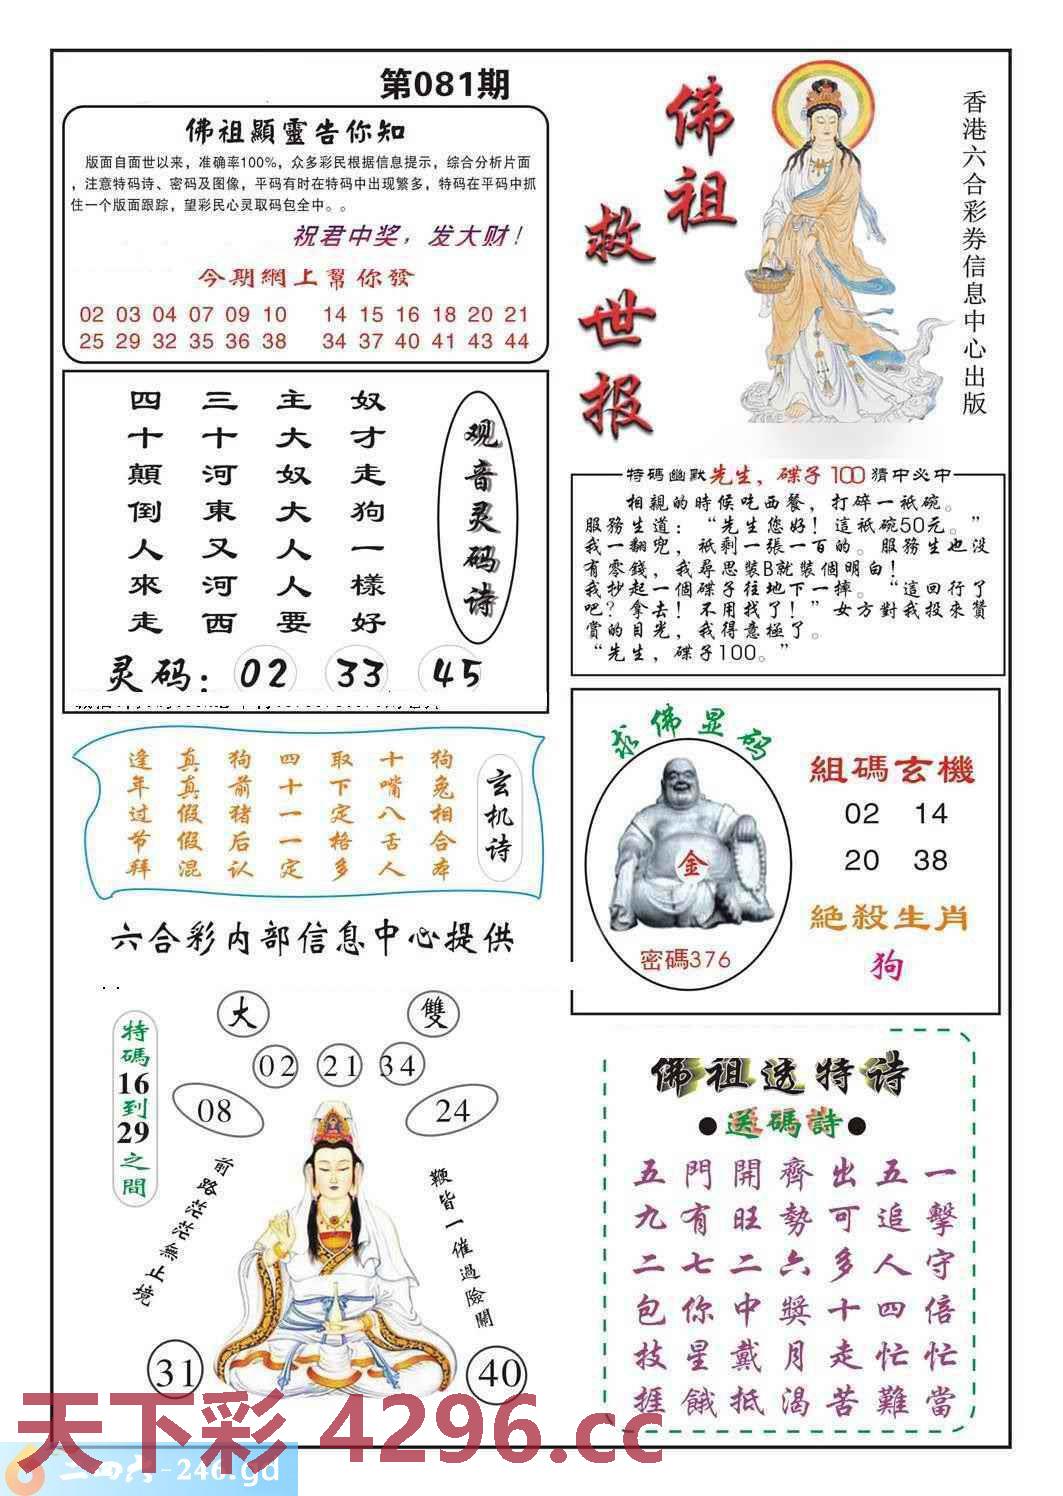 第081期
佛祖顯靈告你知
版面自面世以来，准确率100%，众多彩民根据信息提示，综合分析片面
，注意特码诗、密码及图像，平码有时在特码中出现繁多，特码在平码中抓
住一个版面跟踪，望彩民心灵取码包全中。。
祝君中奖，发大财！
今期網上幫你發
02 03 04 07 09 10 14 15 16 18 20 21
25 29 32 35 36 38 34 37 40 41 43 44
佛祖
救世报
香港六合彩券信息中心出版
观音灵码诗
奴才走狗一樣好
主大奴大人人要
三十河東又河西
四十顛倒人來走
灵码：02 33 45
特碼幽默先生，碟子100猜中必中
相親的時候吃西餐，打碎一祇碗。
服務生道：“先生您好！這祇碗50元。”
我一翻兜，祇剩一張一百的。服務生也没
有零錢，我尋思裝B就裝個明白！
我抄起一個碟子往地下一摔。“這回行了
吧？拿去！不用找了！”女方對我投來贊
賞的目光，我得意極了。
“先生，碟子100。”
玄机诗
狗兔相合本
十嘴八舌人
取下定格多
四十一一定
狗前猪后认
真真假假混
逢年过节拜
六合彩内部信息中心提供
求佛显码
金
密碼376
組碼玄機
02 14
20 38
絕殺生肖
狗
特碼16到29之間
大 雙
02 21 34
08 24
前路茫茫無止境
鞭皆一催過險關
31 40
佛祖透特诗
●送碼詩●
五門開齊出五一
九有旺勢可追擊
二七二六多人守
包你中獎十四倍
技星戴月走忙忙
捱餓抵渴苦難當
天下彩 4296.cc
二四六-246.gd